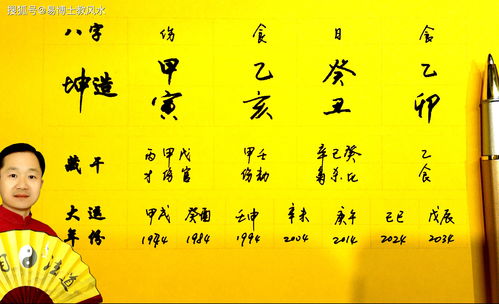 搜狐号@易博士救风水
八字 伤 食 日 食
坤造 甲 乙 癸 乙
寅 亥 丑 卯
藏干 丙甲戊 甲壬 辛己癸 乙
才伤官 伤劫 杀比 食
大运 甲戌 癸酉 壬申 辛未 庚午 己巳 戊辰
年份 1984 1994 2004 2014 2024 2034
道